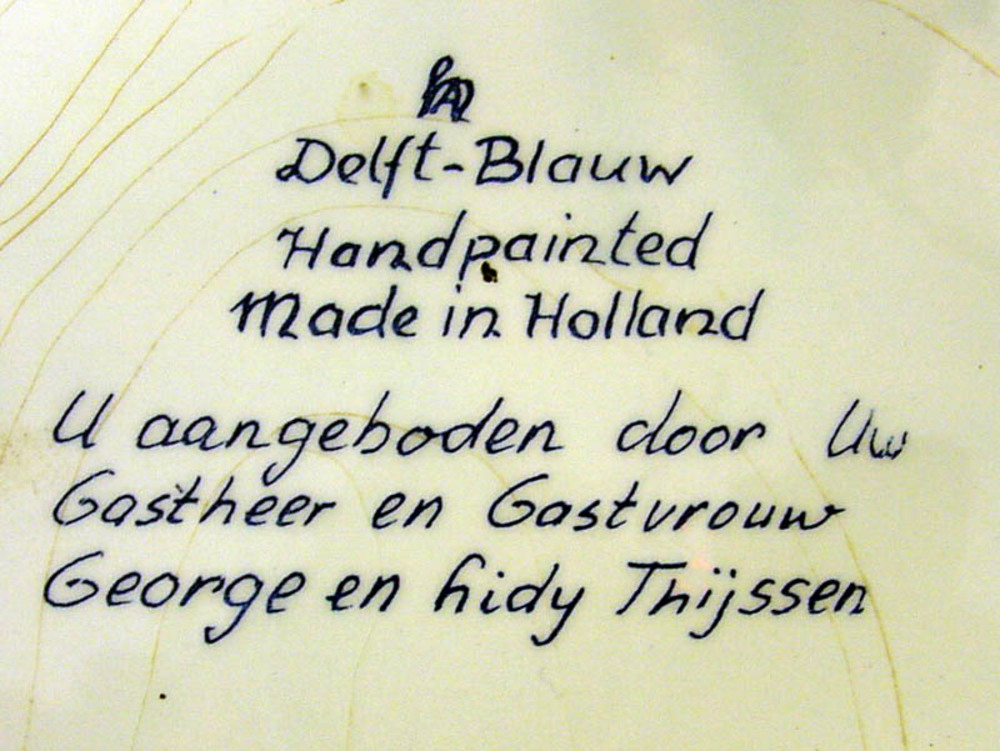 Delft-Blauw
Handpainted
Made in Holland
U aangeboden door Uw
Gastheer en Gastvrouw
George en hidy Thijssen